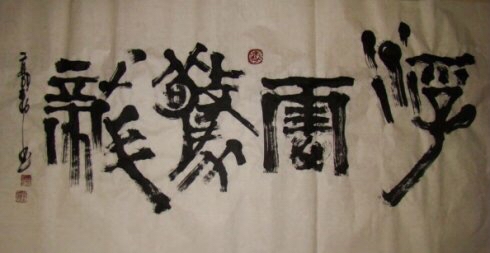 浮雲驚龍